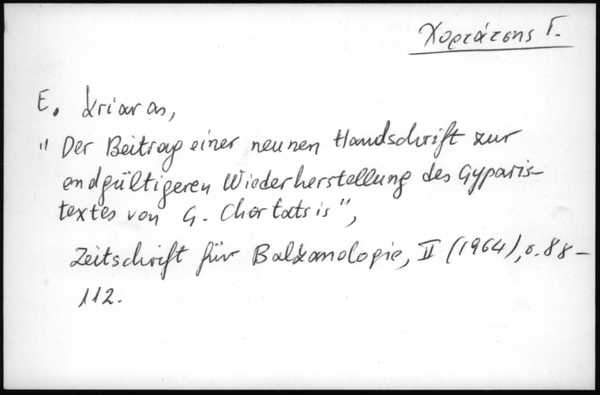 Χορτάτσης Γ.
E. Kriaras,
"Der Beitrag einer neunen Handschrift zur
endgültigeren Wiederherstellung des Gyparis-
textes von G. Chortatsis",
Zeitschrift für Balkanologie, II (1964), σ. 88-
112.